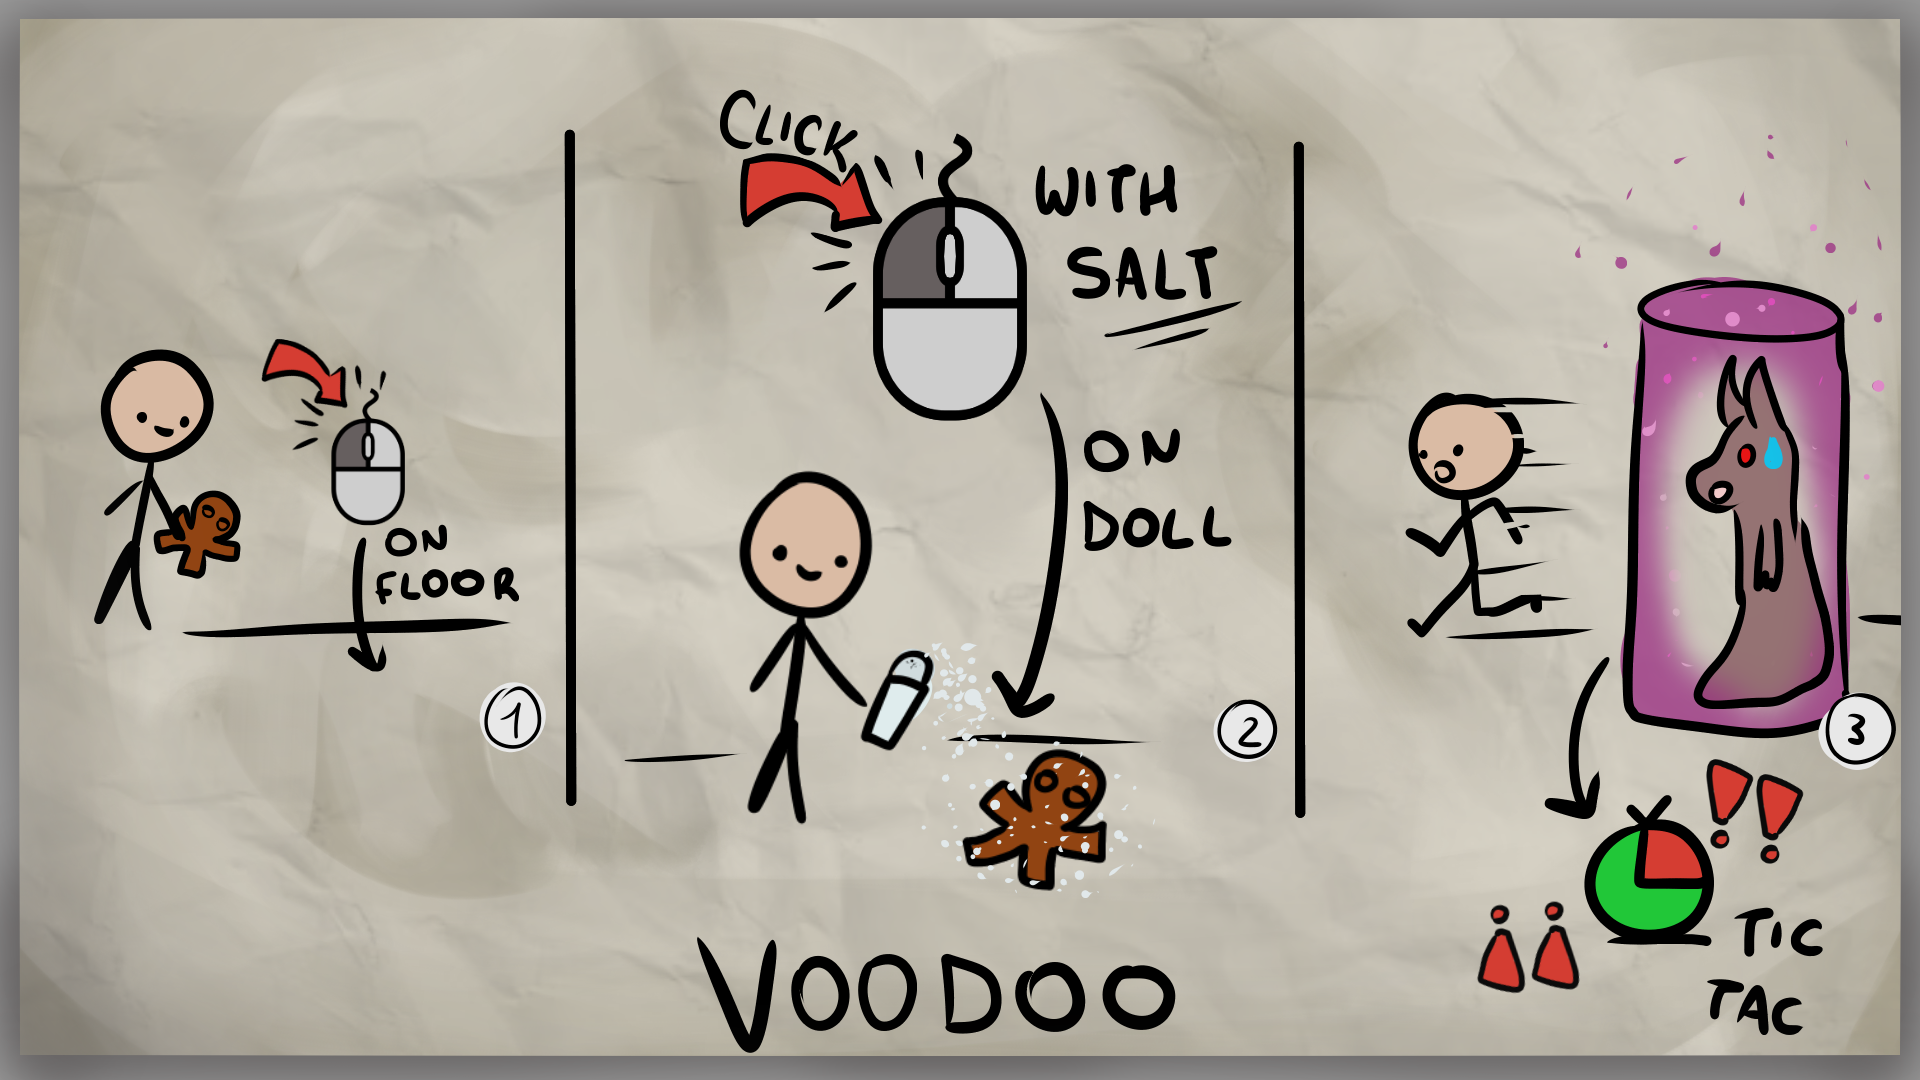 ON
FLOOR
1
CLICK
WITH
SALT
ON
DOLL
2
3
!!
!!
TIC
TAC
VOODOO